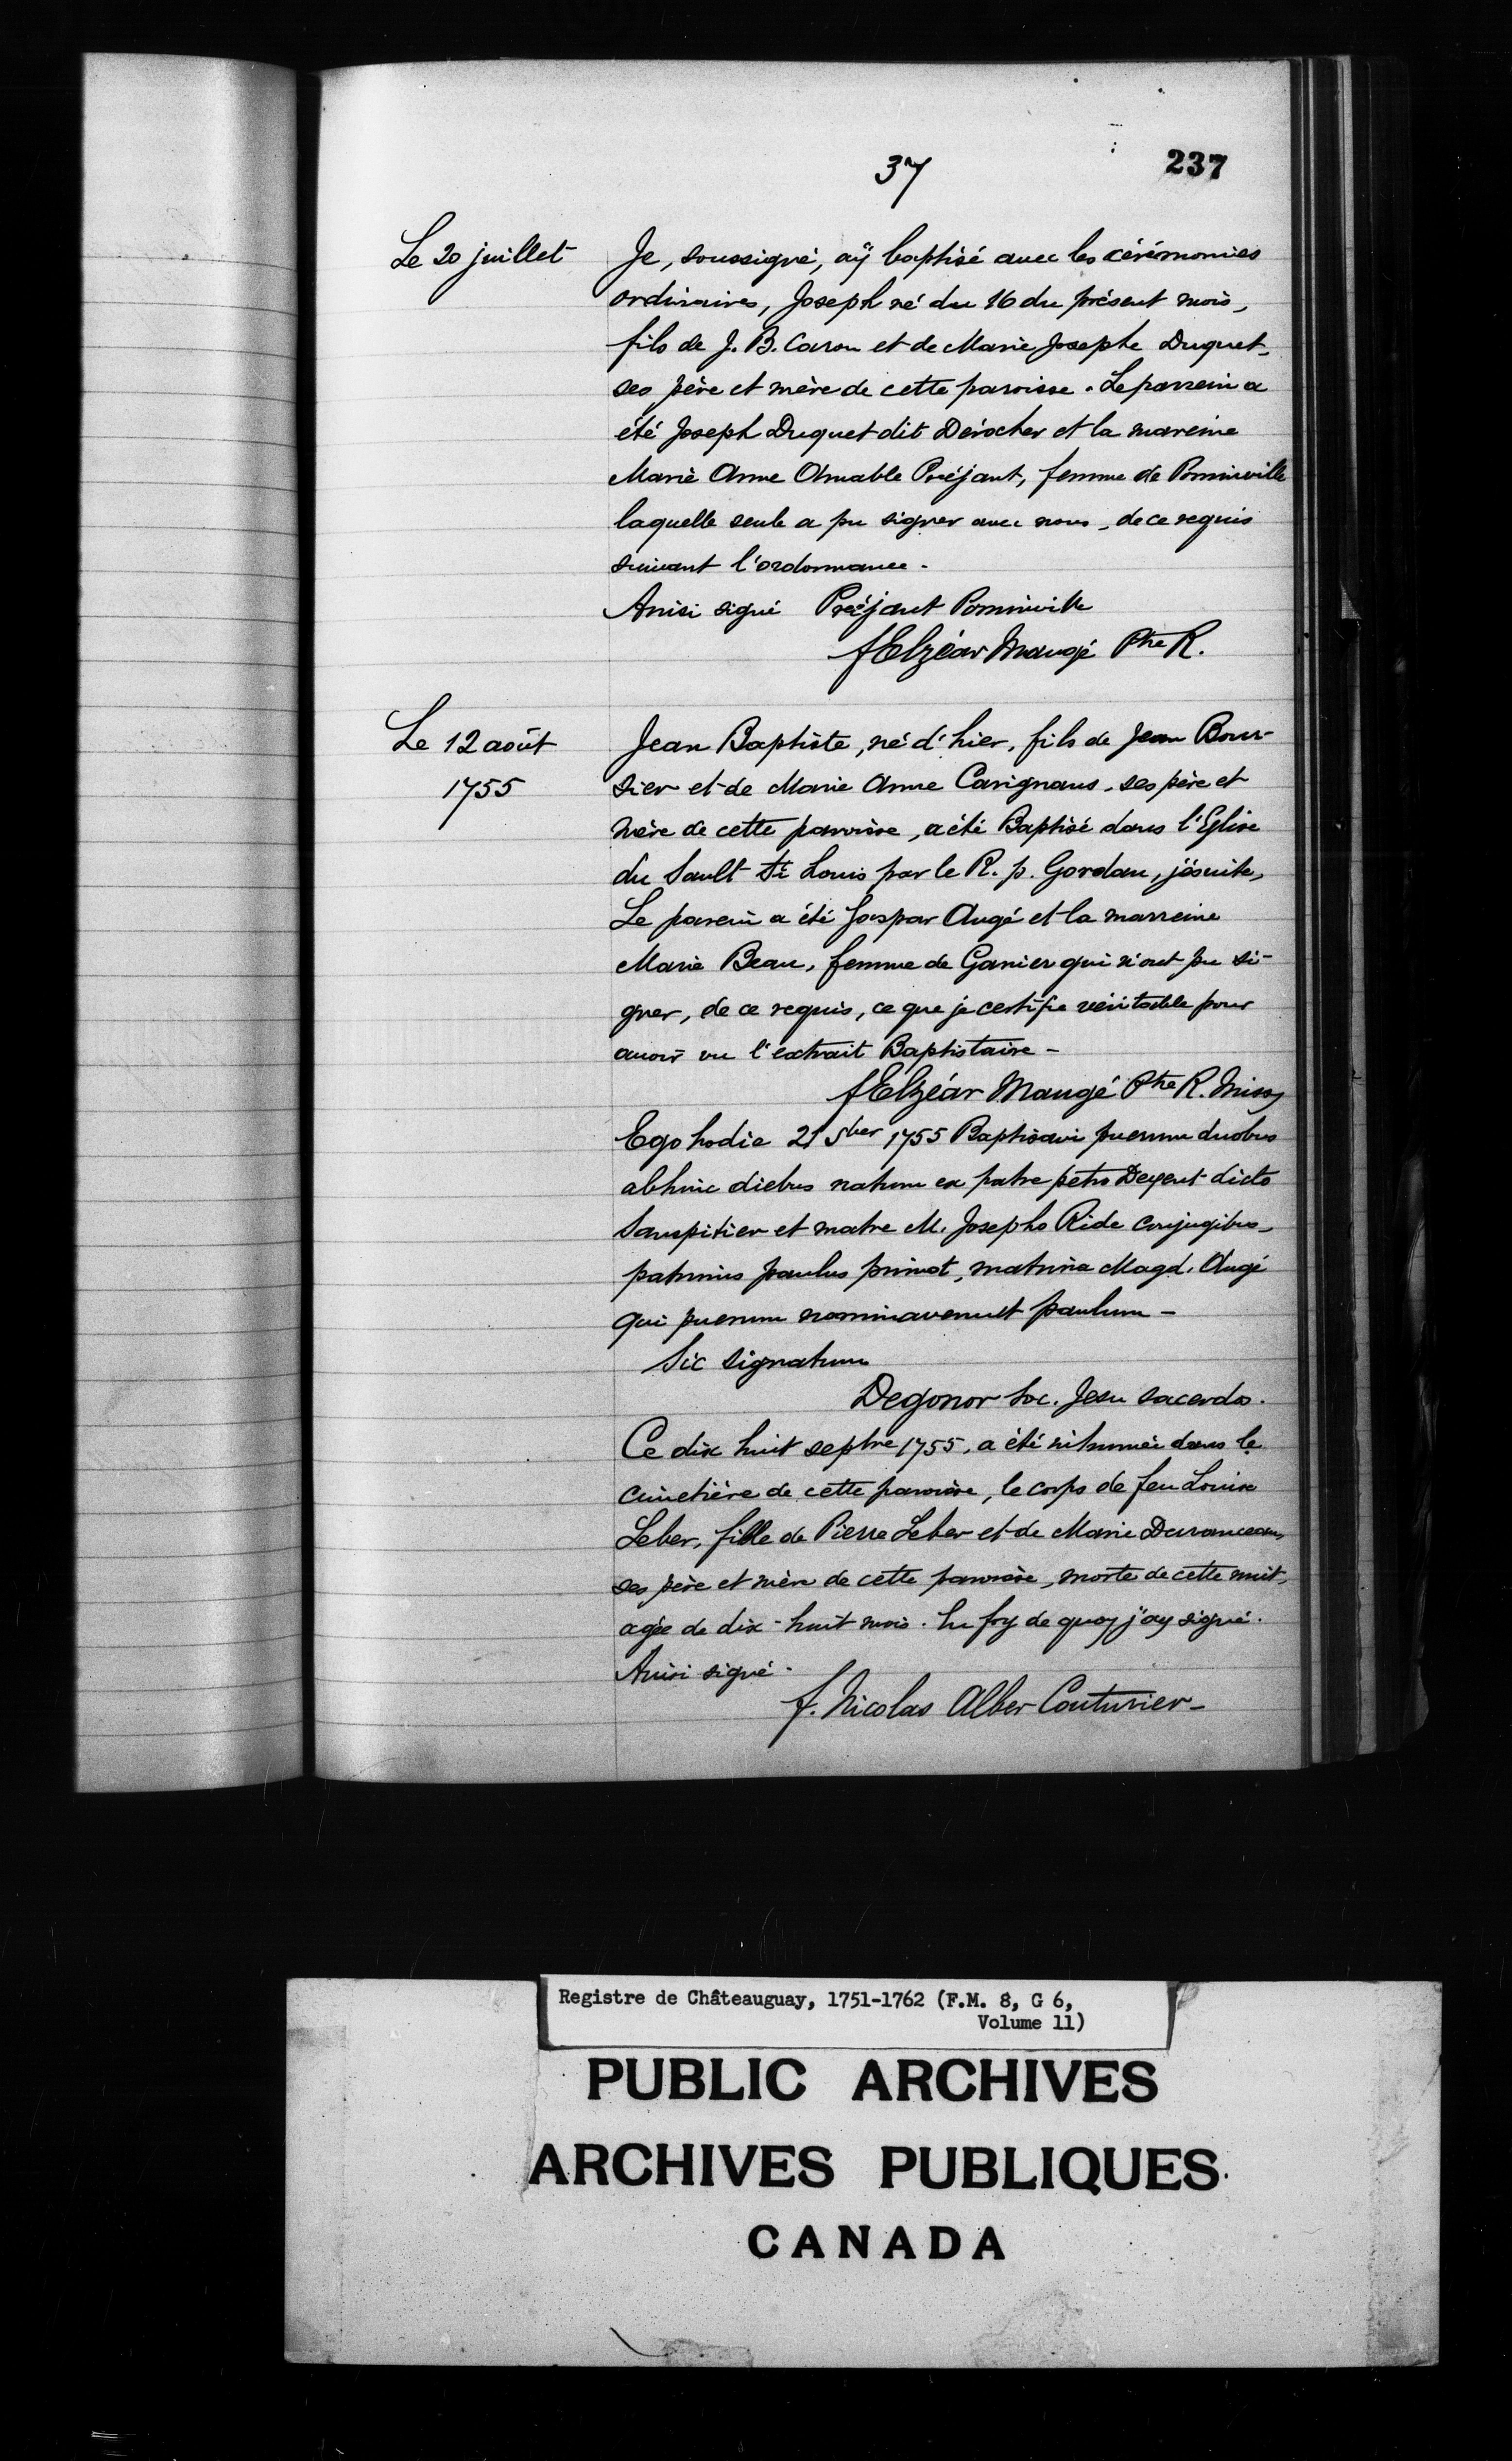 37
237
Le 20 juillet
Je, soussigné, aÿ baptisé avec les cérémonies
ordinaires, Joseph né du 16 du présent mois,
fils de J. B. Caron et de Marie Josephe Duquet,
ses père et mère de cette paroisse. Le parrein a
été Joseph Duquet dit Dérocher et la mareine
Marie Anne Amable Préjant, femme de Pominville
laquelle seule a pu signer avec nous, de ce requis
suivant l'ordonnance.
Ainsi signé Préjant Pominville
f Elzéar Maugé Ptre R.
Le 12 août
1755
Jean Baptiste, né d'hier, fils de Jean Bour-
sier et de Marie Anne Carignans, ses père et
mère de cette paroisse, a été Baptisé dans l'Eglise
du Sault St Louis par le R. p. Gordan, jésuite,
Le parein a été Gaspar Augé et la marreine
Marie Beau, femme de Ganier qui n'ont pu si-
gner, de ce requis, ce que je certifie véritable pour
avoir vu l'extrait Baptistaire -
f Elzéar Maugé Ptre R. Miss
Ego hodie 21 Sber 1755 Baptisavi puerum duobus
abhinc diebus natum ex patre petro Deyent dicto
Sanspitier et matre M. Josepha Ride conjugibus,
patrinus paulus primot, matrina Magd. Augé
qui puerum nominaverunt paulum -
Sic signatum
Degonor Soc. Jesu sacerdos.
Ce dix huit septbre 1755, a été inhumée dans le
cimetière de cette paroisse, le corps de feu Louise
Leber, fille de Pierre Leber et de Marie Duranceau,
ses père et mère de cette paroisse, morte de cette nuit,
agée de dix-huit mois. En foy de quoy j'ay signé.
Ainsi signé.
f. Nicolas Alber Couturier -
Registre de Châteauguay, 1751-1762 (F.M. 8, G 6,
Volume 11)
PUBLIC ARCHIVES
ARCHIVES PUBLIQUES
CANADA